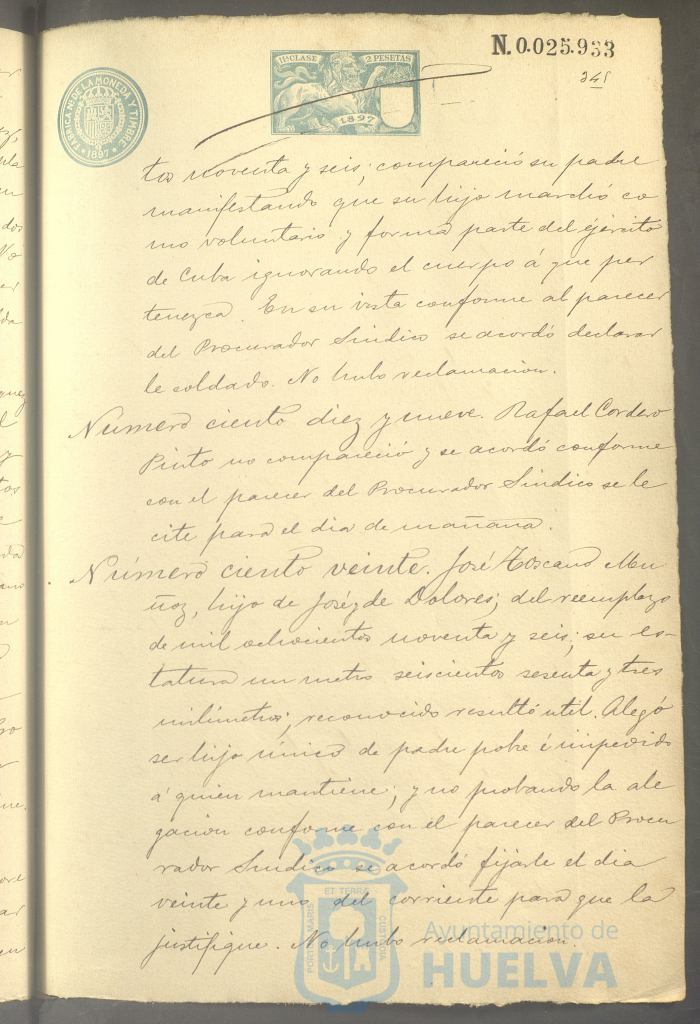 11ª CLASE 2 PESETAS
1897
N.0.025.933
FABRICA Nl. DE LA MONEDA Y TIMBRE
1897
tos noventa y seis; compareció su padre
manifestando que su hijo marchó co
mo voluntario y forma parte del ejército
de Cuba ignorando el cuerpo á que per
tenezca. En su vista conforme al parecer
del Procurador Sindico se acordó declarar
le soldado. No hubo reclamacion.
Número ciento diez y nueve. Rafael Cordero
Pinto no compareció y se acordó conforme
con el parecer del Procurador Sindico se le
cite para el dia de mañana.
Número ciento veinte. José Toscano Mu
ñoz, hijo de José y de Dolores; del reemplazo
de mil ochocientos noventa y seis; su es-
tatura un metro seiscientos sesenta y tres
milimetros; reconocido resultó util. Alegó
ser hijo único de padre pobre é impedido
á quien mantiene; y no probando la ale
gacion conforme con el parecer del Procu
rador Sindico se acordó fijarle el dia
veinte y uno del corriente para que la
justifique. No hubo reclamacion.
PORTUS MARIS
ET TERRÆ
CUSTODIA
Ayuntamiento de
HUELVA